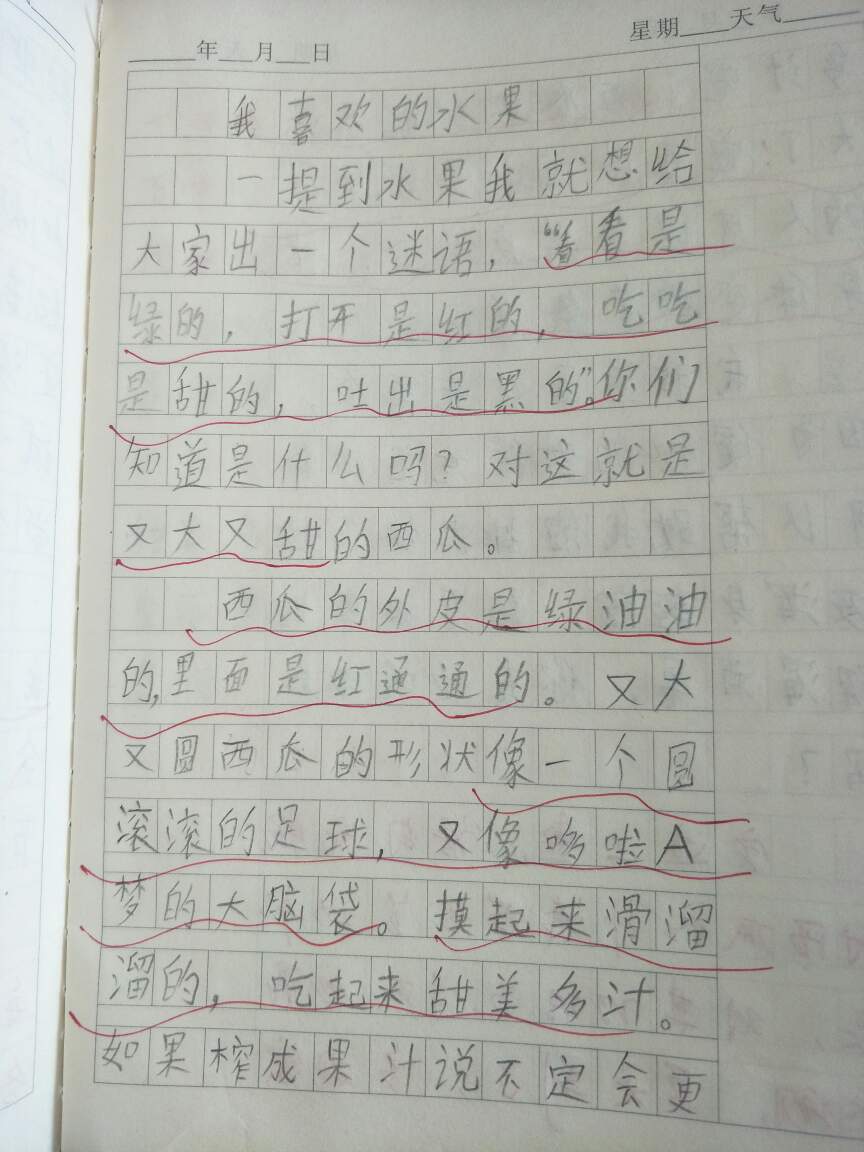 ____年___月___日
星期____天气____
我喜欢的水果
一提到水果我就想给
大家出一个谜语，“看看是
绿的，打开是红的，吃吃
是甜的，吐出是黑的”。你们
知道是什么吗？对这就是
又大又甜的西瓜。
西瓜的外皮是绿油油
的，里面是红通通的。又大
又圆西瓜的形状像一个圆
滚滚的足球，又像哆啦A
梦的大脑袋。摸起来滑溜
溜的，吃起来甜美多汁。
如果榨成果汁说不定会更